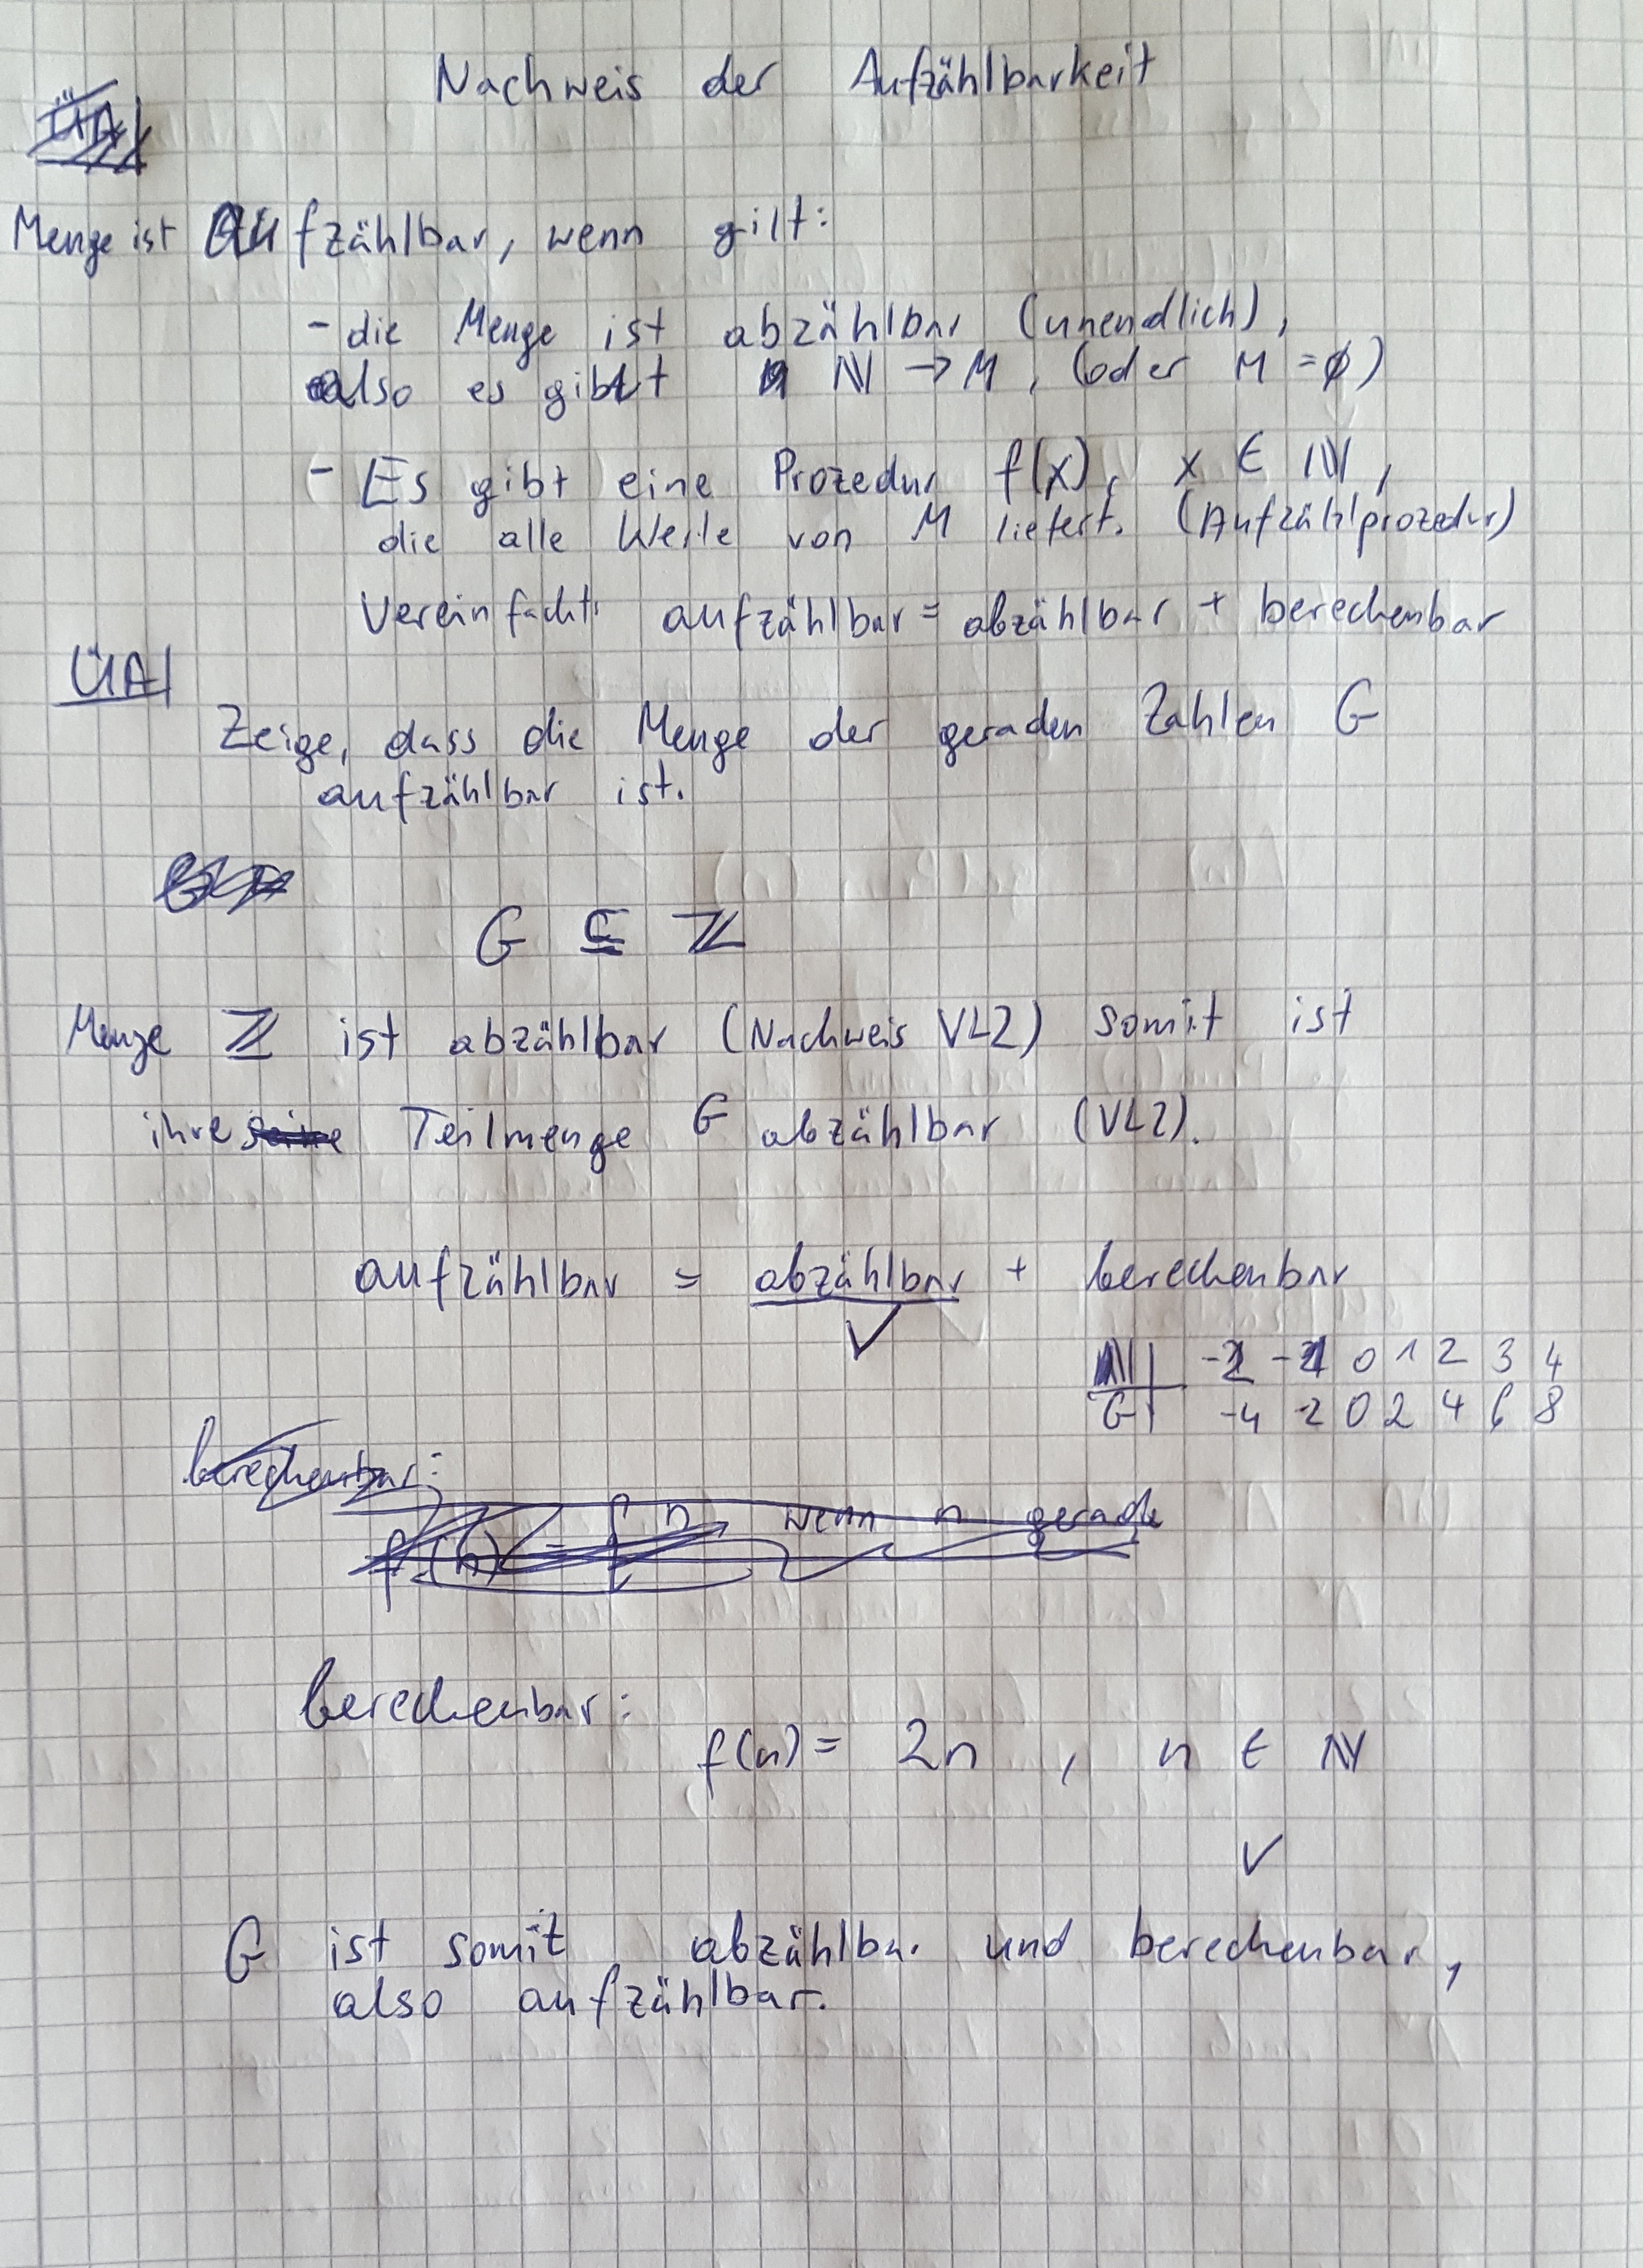 Nachweis der Aufzählbarkeit
ÜA1
Menge ist Aufzählbar, wenn gilt:
- die Menge ist abzählbar (unendlich),
also es gibt ℕ → M, (oder M = ∅)
- Es gibt eine Prozedur f(x), x ∈ ℕ,
die alle Werte von M liefert. (Aufzählprozedur)
Vereinfacht: aufzählbar = abzählbar + berechenbar
ÜA1
Zeige, dass die Menge der geraden Zahlen G
aufzählbar ist.
G ⊆ ℤ
Menge ℤ ist abzählbar (Nachweis VL2) somit ist
ihre seine Teilmenge G abzählbar (VL2).
aufzählbar = abzählbar + berechenbar
✓
ℕ | -2 -1 0 1 2 3 4
G | -4 -2 0 2 4 6 8
berechenbar:
f(n) = { n, wenn n gerade
berechenbar:
f(n) = 2n , n ∈ ℕ
✓
G ist somit abzählbar und berechenbar,
also aufzählbar.